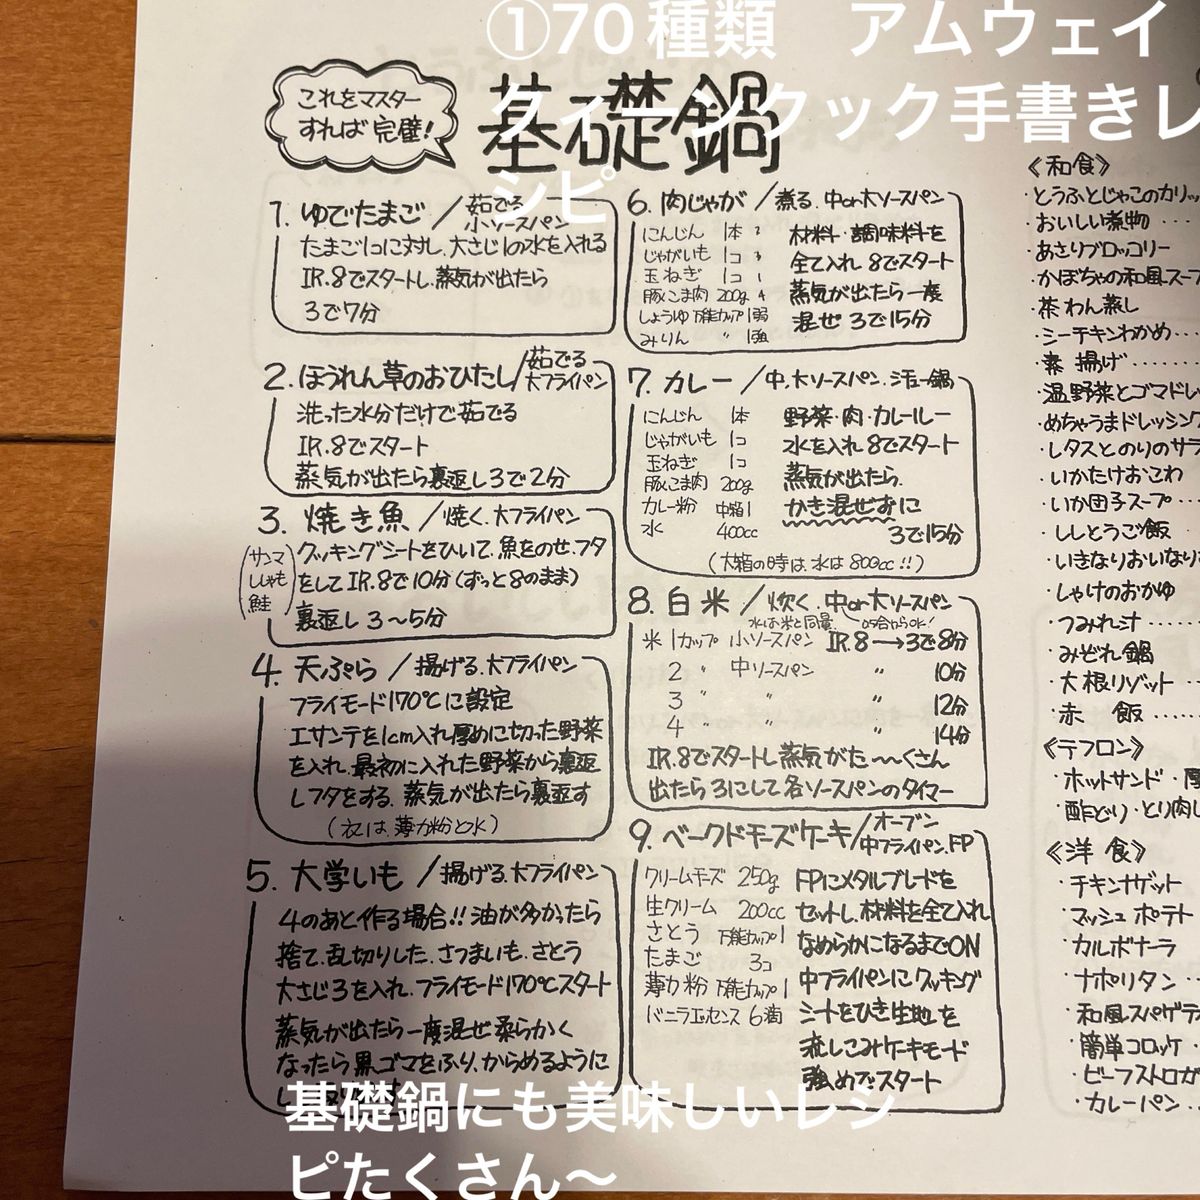 ①70種類　アムウェイ
クィーンクック手書きレ
シピ
これをマスター
すれば完璧!
基礎鍋
1. ゆでたまご／茹でる 小ソースパン
たまご1コに対し、大さじ1の水を入れる
IR.8でスタートし、蒸気が出たら
3で7分
2. ほうれん草のおひたし／茹でる 大フライパン
洗った水分だけで茹でる
IR.8でスタート
蒸気が出たら裏返し3で2分
3. 焼き魚／焼く、大フライパン
サンマ
ししゃも
鮭
クッキングシートをひいて、魚をのせ、フタ
をしてIR.8で10分(ずっと8のまま)
裏返し3〜5分
4. 天ぷら／揚げる、大フライパン
フライモード170℃に設定
エサンテを1cm入れ厚めに切った野菜
を入れ、最初に入れた野菜から裏返
しフタをする、蒸気が出たら裏返す
(衣は、薄力粉と水)
5. 大学いも／揚げる、大フライパン
4のあと作る場合!!油が多かったら
捨て、乱切りした、さつまいも、さとう
大さじ3を入れ、フライモード170℃スタート
蒸気が出たら一度混ぜ柔らかく
なったら黒ゴマをふり、からめるように
し
6. 肉じゃが／煮る、中or大ソースパン
にんじん 1本 2
じゃがいも 1コ 3
玉ねぎ 1コ 1
豚こま肉 200g 4
しょうゆ 万能カップ1弱
みりん 〃 1強
材料・調味料を
全て入れ 8でスタート
蒸気が出たら一度
混ぜ 3で15分
7. カレー／中,大ソースパン、シチュー鍋
にんじん 1本
じゃがいも 1コ
玉ねぎ 1コ
豚こま肉 200g
カレー粉 中箱1
水 400cc
野菜・肉・カレールー
水を入れ 8でスタート
蒸気が出たら、
かき混ぜずに
3で15分
(大箱の時は、水は800cc!!)
8. 白米／炊く、中or大ソースパン
水は米と同量 0.5合からOK!
米 1カップ 小ソースパン IR.8→3で8分
2 〃 中ソースパン 〃 10分
3 〃 〃 〃 12分
4 〃 〃 〃 14分
IR.8でスタートし蒸気がた〜〜くさん
出たら3にして各ソースパンのタイマー
9. ベークドチーズケーキ／オーブン 中フライパン、FP
クリームチーズ 250g
生クリーム 200cc
さとう 万能カップ1
たまご 3コ
薄力粉 万能カップ1
バニラエッセンス 6滴
FPにメタルブレードを
セットし、材料を全て入れ
なめらかになるまでON
中フライパンにクッキング
シートをひき生地を
流しこみケーキモード
強めでスタート
《和食》
・とうふとじゃこのカリッ
・おいしい煮物
・あさりブロッコリー
・かぼちゃの和風スープ
・茶わん蒸し
・シーチキンわかめ・・・
・素揚げ・・・・・
・温野菜とゴマドレ
・めちゃうまドレッシング
・レタスとのりのサラ
・いかたけおこわ
・いか団子スープ
・ししとうご飯・・・
・いきなりおいなり
・しゃけのおかゆ
・つみれ汁・・・・・
・みぞれ鍋
・大根リゾット・・・
・赤飯・・・
《テフロン》
・ホットサンド・厚
・酢どり・とり肉し
《洋食》
・チキンナゲット
・マッシュポテト
・カルボナーラ
・ナポリタン・・・
・和風スパゲテ
・簡単コロッケ・
・ビーフストロガ
・カレーパン・・
基礎鍋にも美味しいレシ
ピたくさん〜